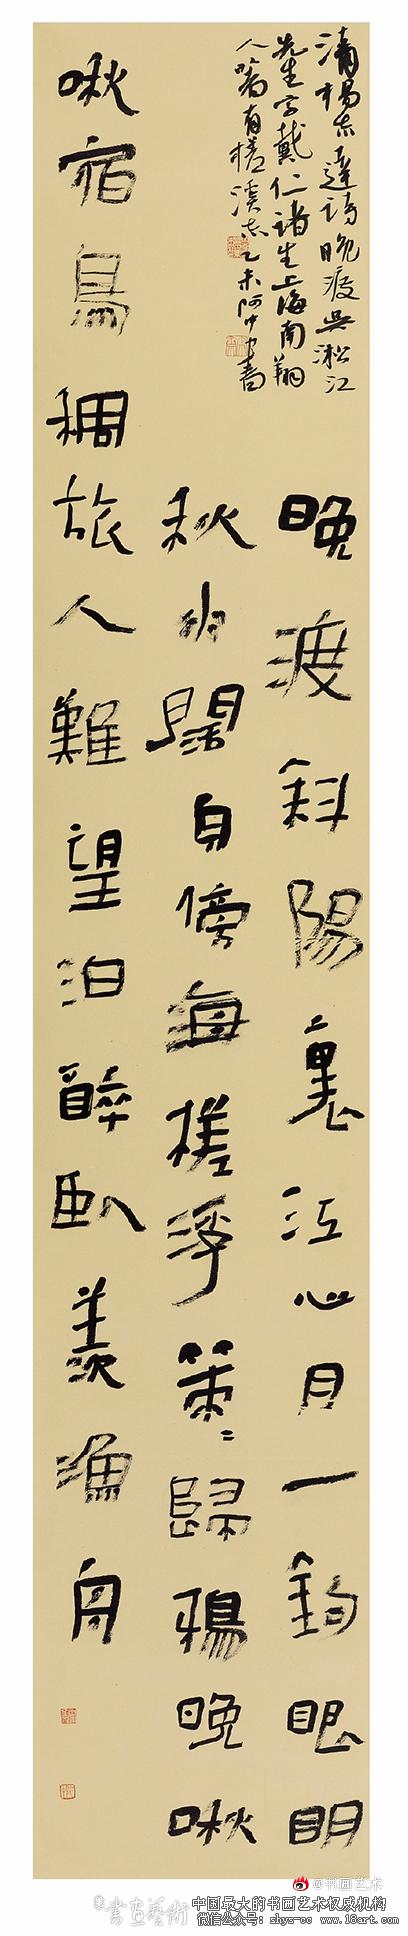 晚渡斜陽裏江心月一鈎眼明
秋水闊自傍海槎浮策々歸鴉晚啾
啾宿鳥稠旅人難望泊醉臥羨漁舟
清楊志達詩晚渡吳淞江
先生字戴仁諸生上海南翔
人著有槎溪志乙未阿中書
@书画艺术
©書画藝術
中国最大的书画艺术权威机构
微信公众号：shys-cc www.18art.com